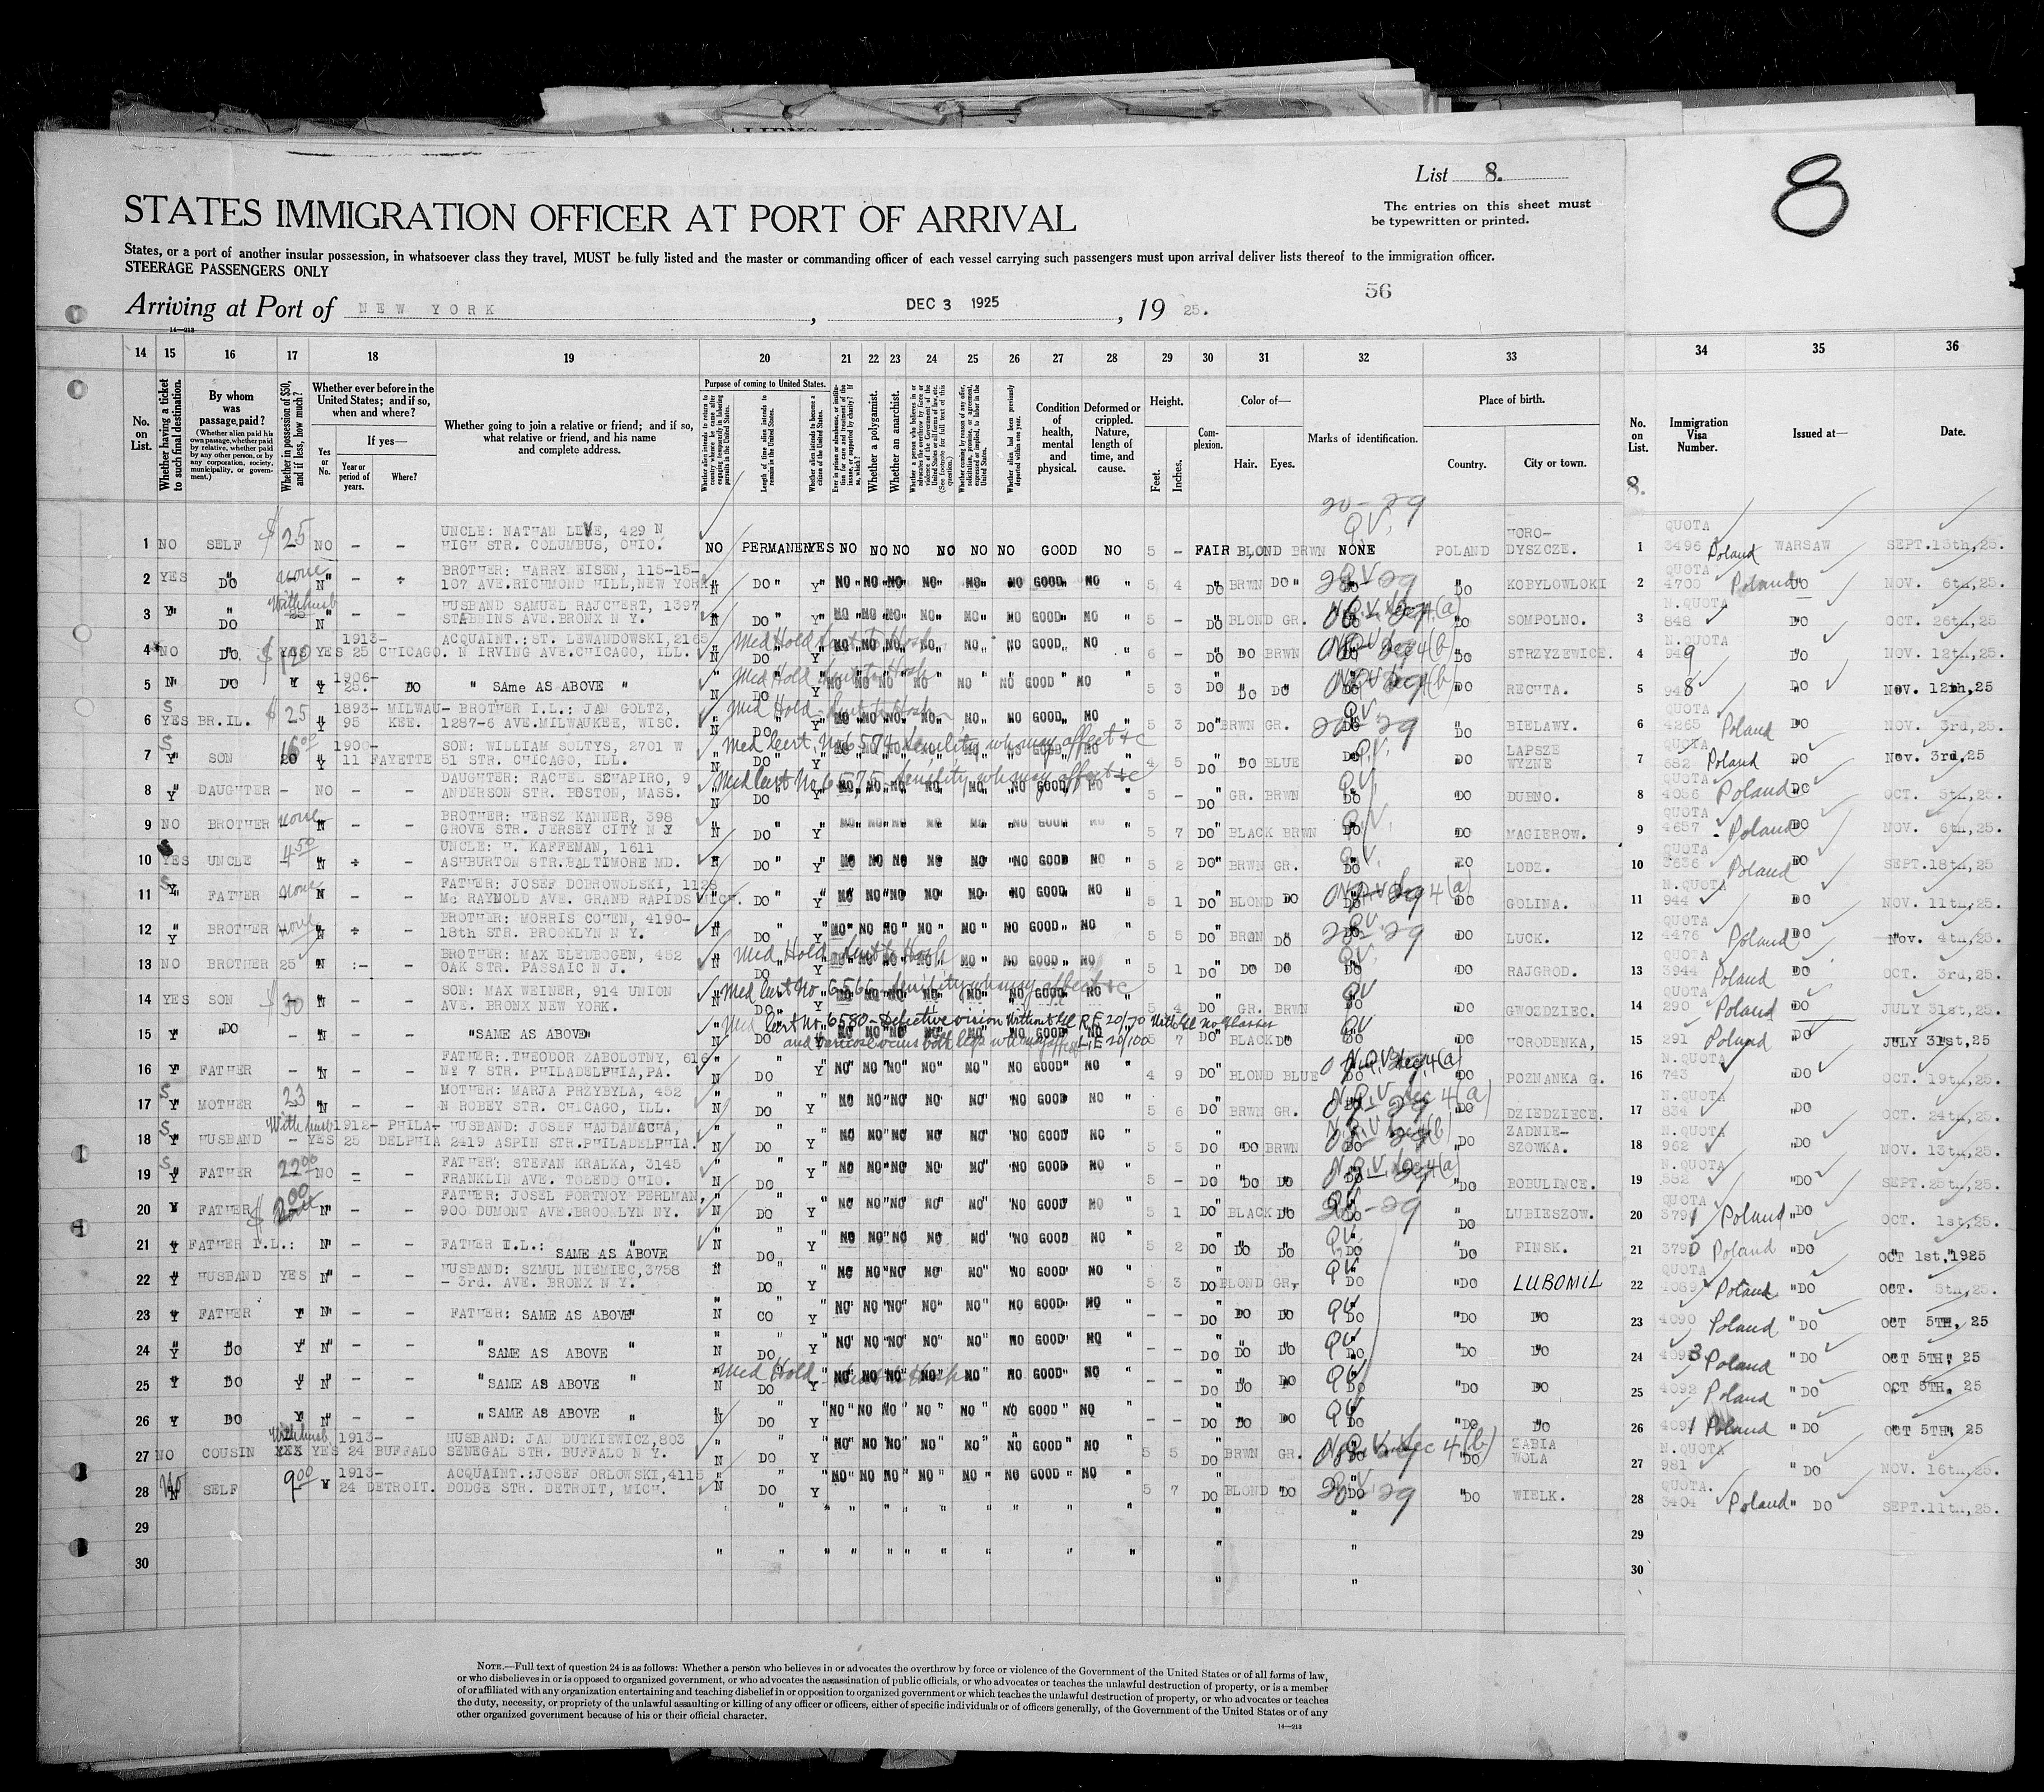 List 8.
8
STATES IMMIGRATION OFFICER AT PORT OF ARRIVAL
The entries on this sheet must
be typewritten or printed.
States, or a port of another insular possession, in whatsoever class they travel, MUST be fully listed and the master or commanding officer of each vessel carrying such passengers must upon arrival deliver lists thereof to the immigration officer.
STEERAGE PASSENGERS ONLY
56
Arriving at Port of NEW YORK, DEC 3 1925, 19 25.
14—213
14 15 16 17 18 19 20 21 22 23 24 25 26 27 28 29 30 31 32 33 34 35 36
No. on List.
Whether having a ticket to such final destination.
By whom was passage paid?
(Whether alien paid his own passage, whether paid by any other person, or by any corporation, society, municipality, or government.)
Whether in possession of $50, and if less, how much?
Whether ever before in the United States; and if so, when and where?
Yes or No.
If yes—
Year or period of years.
Where?
Whether going to join a relative or friend; and if so, what relative or friend, and his name and complete address.
Purpose of coming to United States.
Whether alien intends to return to country whence he came after engaging temporarily in laboring pursuits in the United States.
Length of time alien intends to remain in the United States.
Whether alien intends to become a citizen of the United States.
Ever in prison or almshouse, or institution for care and treatment of the insane, or supported by charity? If so, which?
Whether a polygamist.
Whether an anarchist.
Whether a person who believes in or advocates the overthrow by force or violence of the Government of the United States or all forms of law, etc. (See footnote for full text of this question.)
Whether coming by reason of any offer, solicitation, promise, or agreement, expressed or implied, to labor in the United States.
Whether alien had been previously deported within one year.
Condition of health, mental and physical.
Deformed or crippled. Nature, length of time, and cause.
Height.
Feet.
Inches.
Complexion.
Color of—
Hair.
Eyes.
Marks of identification.
Place of birth.
Country.
City or town.
No. on List.
Immigration Visa Number.
Issued at—
Date.
8.
20-29
1 NO SELF $25 NO - - UNCLE: NATHAN LEVE, 429 N HIGH STR. COLUMBUS, OHIO. NO PERMANENT YES NO NO NO NO NO NO GOOD NO 5 - FAIR BLOND BRWN NONE POLAND HORO-DYSZCZE. 1 QUOTA 3496 Poland WARSAW SEPT.15th,25.
2 YES DO none N - - BROTHER: HARRY EISEN, 115-15-107 AVE.RICHMOND HILL,NEW YORK N DO Y NO NO NO NO NO NO GOOD NO 5 4 DO BRWN DO DO DO KOBYLOWLOKI 2 QUOTA 4700 Poland DO NOV. 6th,25.
3 Y DO With husb N - - HUSBAND SAMUEL RAJCHERT, 1397 STABBINS AVE.BRONX N Y. N DO Y NO NO NO NO NO NO GOOD NO 5 - DO BLOND GR. N.Q.V. Dec 4(a) DO SOMPOLNO. 3 N.QUOTA 848 DO OCT. 26th,25
4 NO DO $120 YES 1913-25 CHICAGO. ACQUAINT.:ST. LEWANDOWSKI,2165 N IRVING AVE.CHICAGO, ILL. N Med Hold sent to Hosp DO Y NO NO NO NO NO NO GOOD NO 6 - DO DO BRWN DO STRZYZEWICE. 4 N.QUOTA 949 DO NOV. 12th,25.
5 N DO Y Y 1906-25. DO " SAme AS ABOVE " N Med Hold sent to Hosp DO Y NO NO NO NO NO NO GOOD NO 5 3 DO DO DO DO RECHTA. 5 948 DO Nov. 12th,25
6 YES BR.IL. $25 Y 1893-95 MILWAU-KEE. BROTHER I.L.: JAN GOLTZ, 1287-6 AVE.MILWAUKEE, WISC. N Med Hold sent to Hosp DO Y NO NO NO NO NO NO GOOD NO 5 3 DO BRWN GR. DO BIELAWY. 6 QUOTA 4265 Poland DO NOV. 3rd,25.
7 Y SON 16.00 Y 1900-11 FAYETTE SON: WILLIAM SOLTYS, 2701 W 51 STR. CHICAGO, ILL. N Med Cert No 6574 Senility wh may affect &c DO Y 4 5 DO DO BLUE DO DO LAPSZE WYZNE 7 QUOTA 682 Poland DO Nov. 3rd,25
8 Y DAUGHTER - NO - - DAUGHTER: RACHEL SCHAPIRO, 9 ANDERSON STR. BOSTON, MASS. N Med Cert No 6575 Senility wh may affect &c DO Y 5 - DO GR. BRWN DO DO DUBNO. 8 QUOTA 4086 Poland DO OCT. 5th,25.
9 NO BROTHER none N - - BROTHER: HERSZ KANNER, 398 GROVE STR. JERSEY CITY N Y N DO Y NO NO NO NO NO NO GOOD NO 5 7 DO BLACK BRWN DO DO MAGIEROW. 9 QUOTA 4657 Poland DO NOV. 6th,25.
10 YES UNCLE 4.50 N - - UNCLE: H. KAFFEMAN, 1611 ASHBURTON STR.BALTIMORE MD. N DO Y NO NO NO NO NO NO GOOD NO 5 2 DO BRWN GR. DO DO LODZ. 10 QUOTA Poland DO SEPT.18th,25
11 Y FATHER none N - - FATHER: JOSEF DOBROWOLSKI, 1128 Mc RAYNOLD AVE. GRAND RAPIDS MICH. DO Y NO NO NO NO NO NO GOOD NO 5 1 DO BLOND DO DO GOLINA. 11 N.QUOTA 944 DO NOV. 11th,25.
12 Y BROTHER none N - - BROTHER: MORRIS COHEN, 4190-18th STR. BROOKLYN N Y. N DO Y NO NO NO NO NO NO GOOD NO 5 5 DO BRWN DO DO LUCK. 12 QUOTA 4476 Poland DO Nov. 4th,25.
13 NO BROTHER 25 N - - BROTHER: MAX ELENBOGEN, 452 OAK STR. PASSAIC N J. N Med Hold sent to Hosp DO Y NO NO NO NO NO NO GOOD NO 5 1 DO DO DO DO DO RAJGROD. 13 QUOTA 3944 Poland DO OCT. 3rd,25.
14 YES SON $30 N - - SON: MAX WEINER, 914 UNION AVE. BRONX NEW YORK. N Med Cert No 6566 Senility wh may affect &c DO Y 5 4 DO GR. BRWN DO DO GWOZDZIEC. 14 QUOTA 290 Poland DO JULY 31st,25.
15 Y DO - N - - "SAME AS ABOVE" N Med Cert No 6580 - Defective vision Without Gl R.E 20/70 With Gl no glasses and varicose veins both legs wh may affect L.E 20/100 DO Y 5 7 BLACK DO DO DO HORODENKA, 15 291 Poland DO JULY 31st,25
16 Y FATHER - N - - FATHER: THEODOR ZABOLOTNY, 616 No 7 STR. PHILADELPHIA,PA. N DO Y NO NO NO NO NO NO GOOD NO 4 9 DO BLOND BLUE N.Q.V. Dec 4(a) DO POZNANKA G. 16 N.QUOTA 743 DO OCT. 19th,25.
17 Y MOTHER 23 N - - MOTHER: MARJA PRZYBYLA, 452 N ROBEY STR. CHICAGO, ILL. N DO Y NO NO NO NO NO NO GOOD NO 5 6 DO BRWN GR. N.Q.V. Dec 4(a) DO DZIEDZIECE. 17 N.QUOTA 834 DO OCT. 24th,25.
18 Y HUSBAND With husb - YES 1912-25 PHILA-DELPHIA HUSBAND: JOSEF HAJDAMACHA, 2419 ASPIN STR.PHILADELPHIA. N DO Y NO NO NO NO NO NO GOOD NO 5 5 DO DO BRWN DO ZADNIE-SZOWKA. 18 N.QUOTA 962 DO NOV. 13th,25.
19 Y FATHER 22.00 NO - - FATHER: STEFAN KRALKA, 3145 FRANKLIN AVE. TOLEDO OHIO. N DO Y NO NO NO NO NO NO GOOD NO 5 - DO DO DO N.Q.V. Dec 4(a) DO BOBULINCE. 19 N.QUOTA 582 DO SEPT.25th,25.
20 Y FATHER $200 N - - FATHER: JOSEL PORTNOY PERLMAN, 900 DUMONT AVE.BROOKLYN NY. N DO Y NO NO NO NO NO NO GOOD NO 5 1 DO BLACK DO DO LUBIESZOW. 20 QUOTA 3791 Poland DO OCT. 1st,25.
21 Y FATHER I.L.: N - - FATHER I.L.: SAME AS ABOVE N DO Y NO NO NO NO NO NO GOOD NO 5 2 DO DO DO DO DO PINSK. 21 3790 Poland DO OCT 1st,1925
22 Y HUSBAND YES N - - HUSBAND: SZMUL NIEMIEC,3758 - 3rd. AVE. BRONX N Y. N DO Y NO NO NO NO NO NO GOOD NO 5 3 DO BLOND GR, DO DO LUBOMIL 22 QUOTA 4089 Poland DO OCT. 5th,25.
23 Y FATHER Y N - - FATHER: SAME AS ABOVE N CO Y NO NO NO NO NO NO GOOD NO - - DO DO DO DO DO DO 23 4090 Poland DO OCT 5TH, 25
24 Y DO Y N - - "SAME AS ABOVE " N DO Y NO NO NO NO NO NO GOOD NO - - DO DO DO DO DO DO 24 4093 Poland DO OCT 5TH, 25
25 Y DO Y N - - "SAME AS ABOVE " N Med Hold sent to Hosp DO Y NO NO NO NO NO NO GOOD NO - - DO DO DO DO DO DO 25 4092 Poland DO OCT 5TH, 25
26 Y DO Y N - - "SAME AS ABOVE " N DO Y NO NO NO NO NO NO GOOD NO - - DO DO DO DO DO DO 26 4091 Poland DO OCT 5TH, 25
27 NO COUSIN With husb YES 1913-24 BUFFALO HUSBAND: JAN DUTKIEWICZ,803 SENEGAL STR. BUFFALO N Y. N DO Y NO NO NO NO NO NO GOOD NO 5 5 DO BRWN GR. N.Q.V. Dec 4(b) DO ZABIA WOLA 27 N.QUOTA 981 DO NOV. 16th,25.
28 No SELF 9.00 Y 1913-24 DETROIT. ACQUAINT.:JOSEF ORLOWSKI,4115 DODGE STR. DETROIT, MICH. N DO Y NO NO NO NO NO NO GOOD NO 5 7 DO BLOND DO DO DO WIELK. 28 QUOTA. 3404 Poland DO SEPT.11th,25.
29 29
30 30
NOTE.—Full text of question 24 is as follows: Whether a person who believes in or advocates the overthrow by force or violence of the Government of the United States or of all forms of law,
or who disbelieves in or is opposed to organized government, or who advocates the assassination of public officials, or who advocates or teaches the unlawful destruction of property, or is a member
of or affiliated with any organization entertaining and teaching disbelief in or opposition to organized government or which teaches the unlawful destruction of property, or who advocates or teaches
the duty, necessity, or propriety of the unlawful assaulting or killing of any officer or officers, either of specific individuals or of officers generally, of the Government of the United States or of any
other organized government because of his or their official character.
14—213